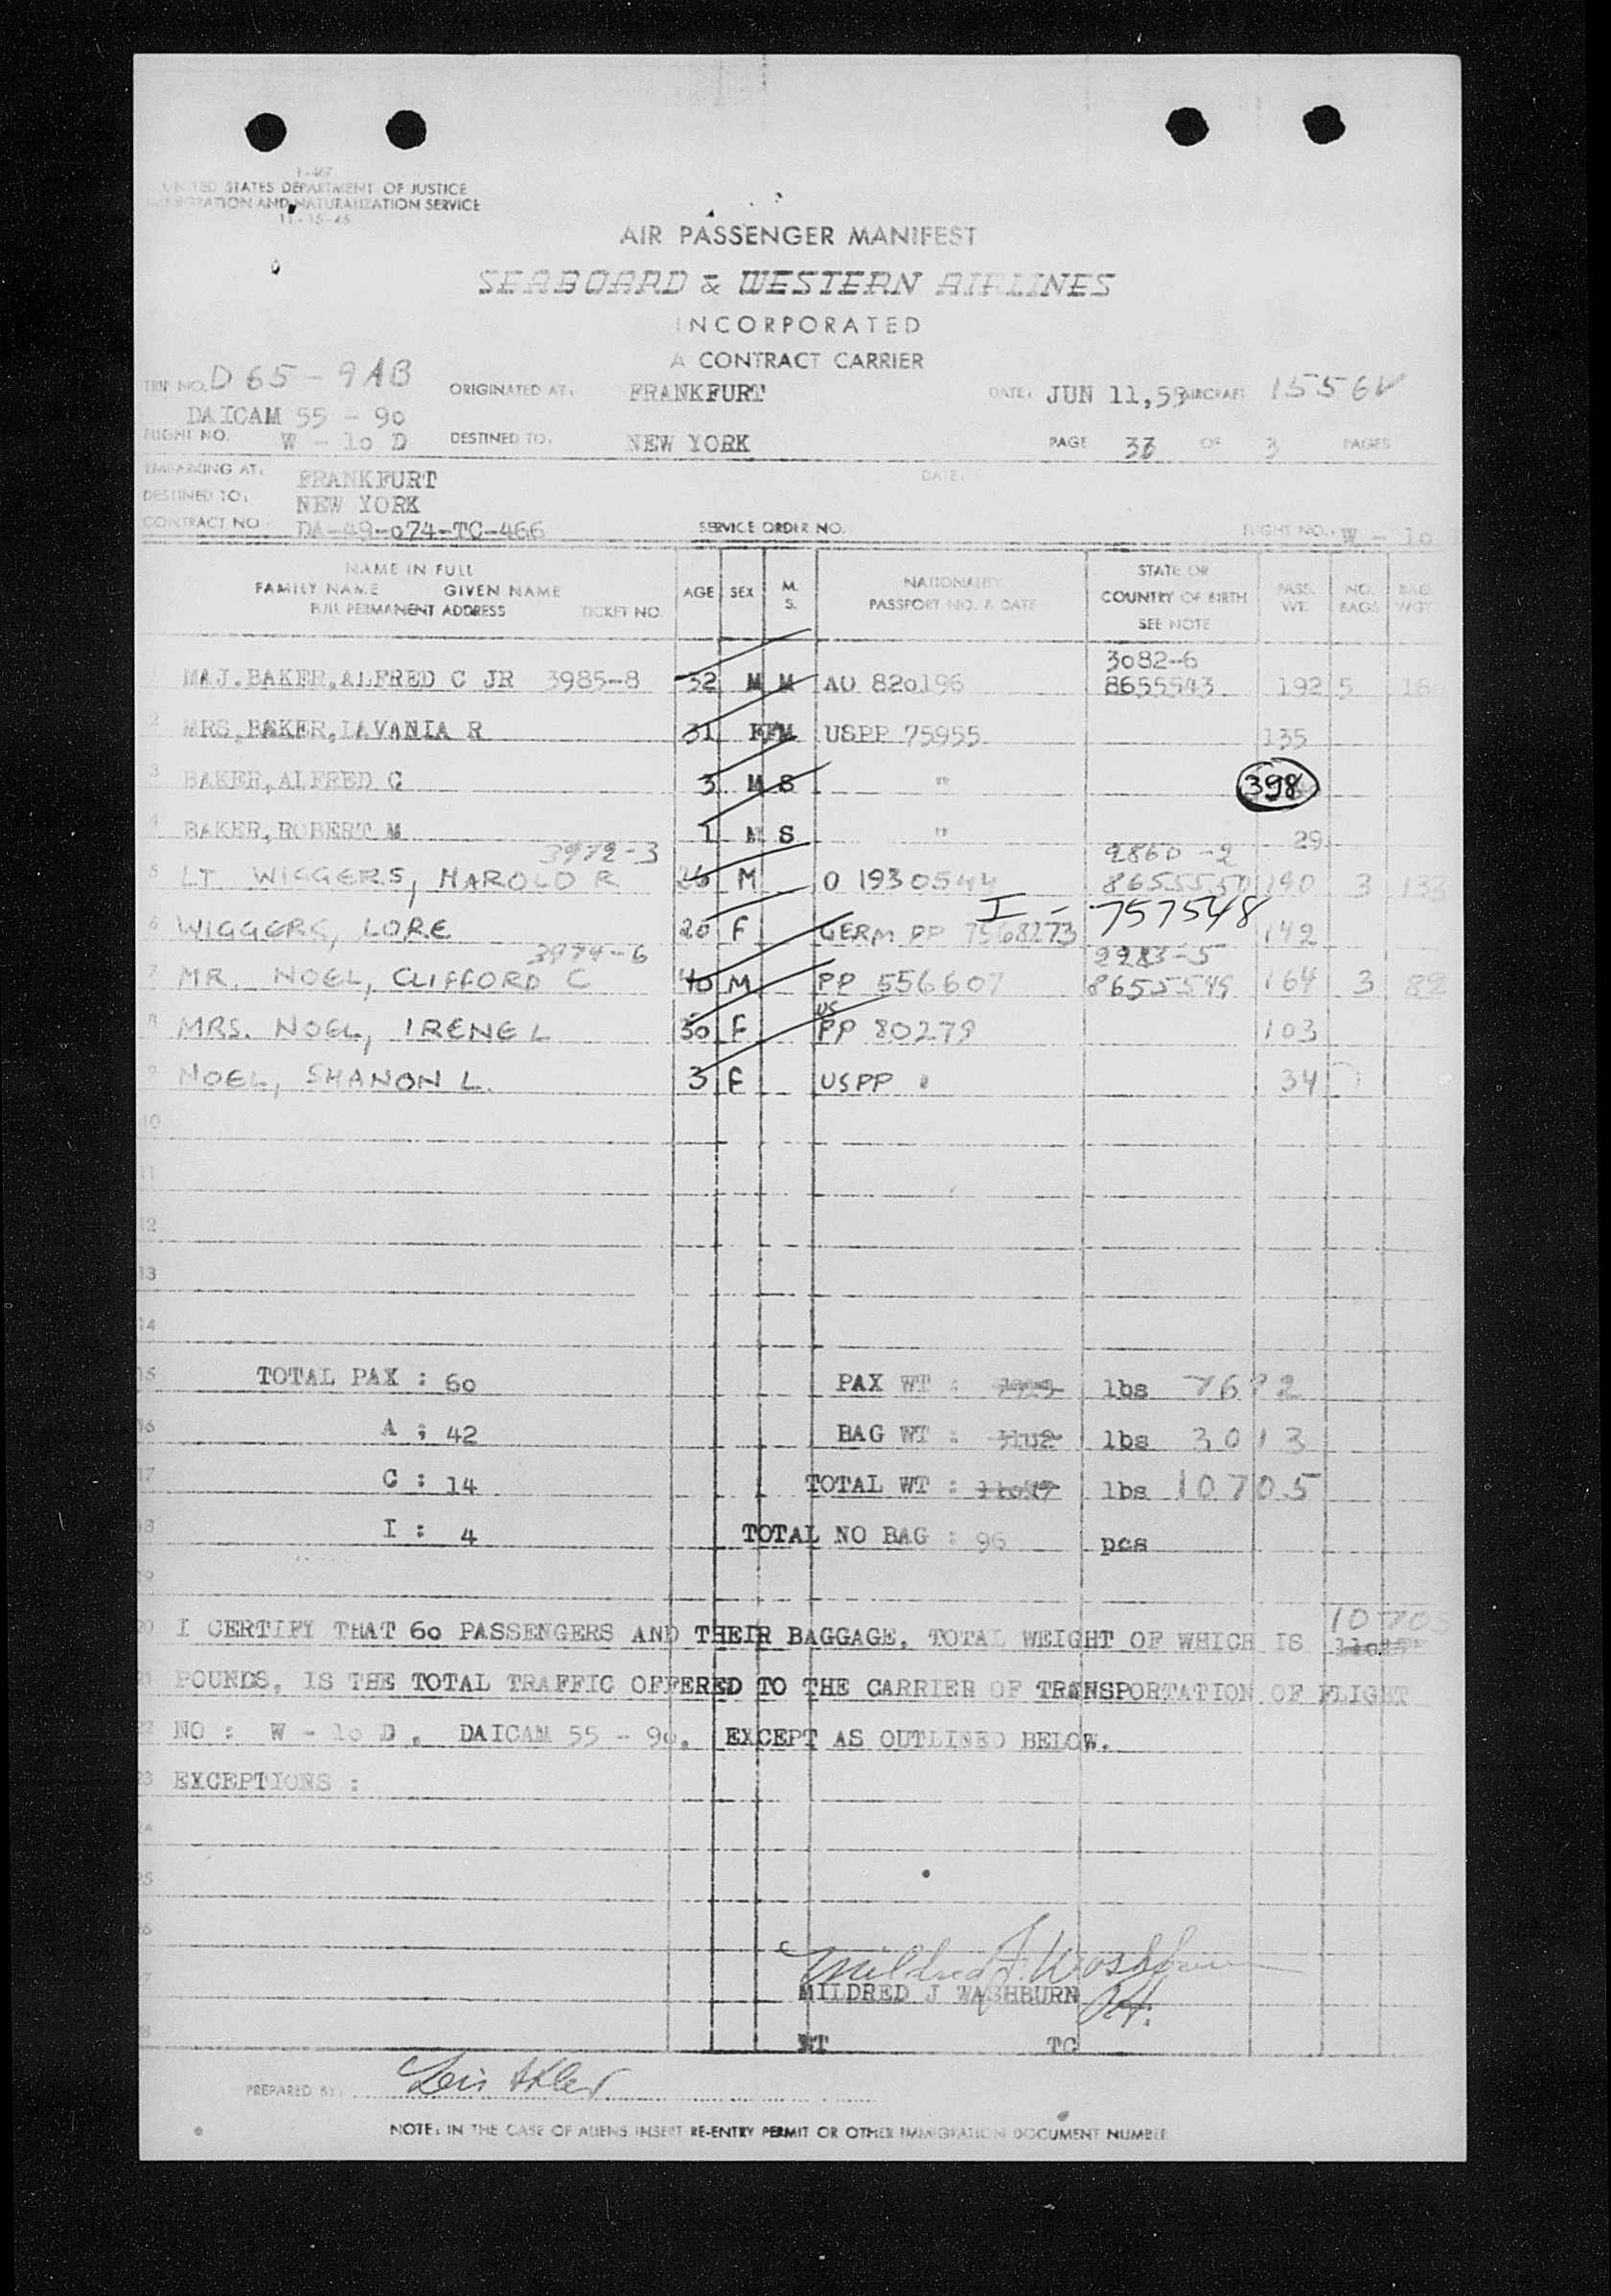 I-467
UNITED STATES DEPARTMENT OF JUSTICE
IMMIGRATION AND NATURALIZATION SERVICE
11-15-45
AIR PASSENGER MANIFEST
SEABOARD & WESTERN AIRLINES
INCORPORATED
A CONTRACT CARRIER
TRIP NO. D 65 - 9AB ORIGINATED AT: FRANKFURT DATE: JUN 11, AIRCRAFT 1556V
DAICAM 55 - 90
FLIGHT NO. W - 10 D DESTINED TO: NEW YORK PAGE 3 OF 3 PAGES
EMBARKING AT: FRANKFURT DATE:
DESTINED TO: NEW YORK
CONTRACT NO. DA-49-074-TC-466 SERVICE ORDER NO. FLIGHT NO. W - 10
NAME IN FULL
FAMILY NAME GIVEN NAME
FULL PERMANENT ADDRESS TICKET NO. AGE SEX M. S. NATIONALITY PASSPORT NO. & DATE STATE OR COUNTRY OF BIRTH SEE NOTE PASS. WT. NO. BAGS BAG WGT.
3082-6
MAJ. BAKER, ALFRED C JR 3985-8 32 M M AO 820196 8655543 192 5
2 MRS, BAKER, LAVANIA R 31 F M USPP 75955 135
3 BAKER, ALFRED C 3 M S " 398
4 BAKER, ROBERT M 1 M S " 29
3972-3 2860-2
5 LT. WIGGERS, HAROLD R 26 M O 1930544 8655550 190 3 133
I - 757548
6 WIGGERS, LORE 20 F GERM PP 7568273 142
3974-6 2283-5
7 MR. NOEL, CLIFFORD C 40 M PP 556607 8655549 164 3 82
US
8 MRS. NOEL, IRENE L 30 F PP 80279 103
9 NOEL, SHANON L. 3 F USPP " 34
10
11
12
13
14
15 TOTAL PAX : 60 PAX WT : lbs 7692
16 A : 42 BAG WT : 3102 lbs 3013
17 C : 14 TOTAL WT : lbs 10705
18 I : 4 TOTAL NO BAG : 96 pcs
19
10705
20 I CERTIFY THAT 60 PASSENGERS AND THEIR BAGGAGE, TOTAL WEIGHT OF WHICH IS
21 POUNDS, IS THE TOTAL TRAFFIC OFFERED TO THE CARRIER OF TRANSPORTATION OF FLIGHT
22 NO : W - 10 D, DAICAM 55 - 90, EXCEPT AS OUTLINED BELOW.
23 EXCEPTIONS :
24
25
26
Mildred J. Washburn
27 MILDRED J WASHBURN
28 TC
PREPARED BY:
NOTE: IN THE CASE OF ALIENS INSERT RE-ENTRY PERMIT OR OTHER IMMIGRATION DOCUMENT NUMBER